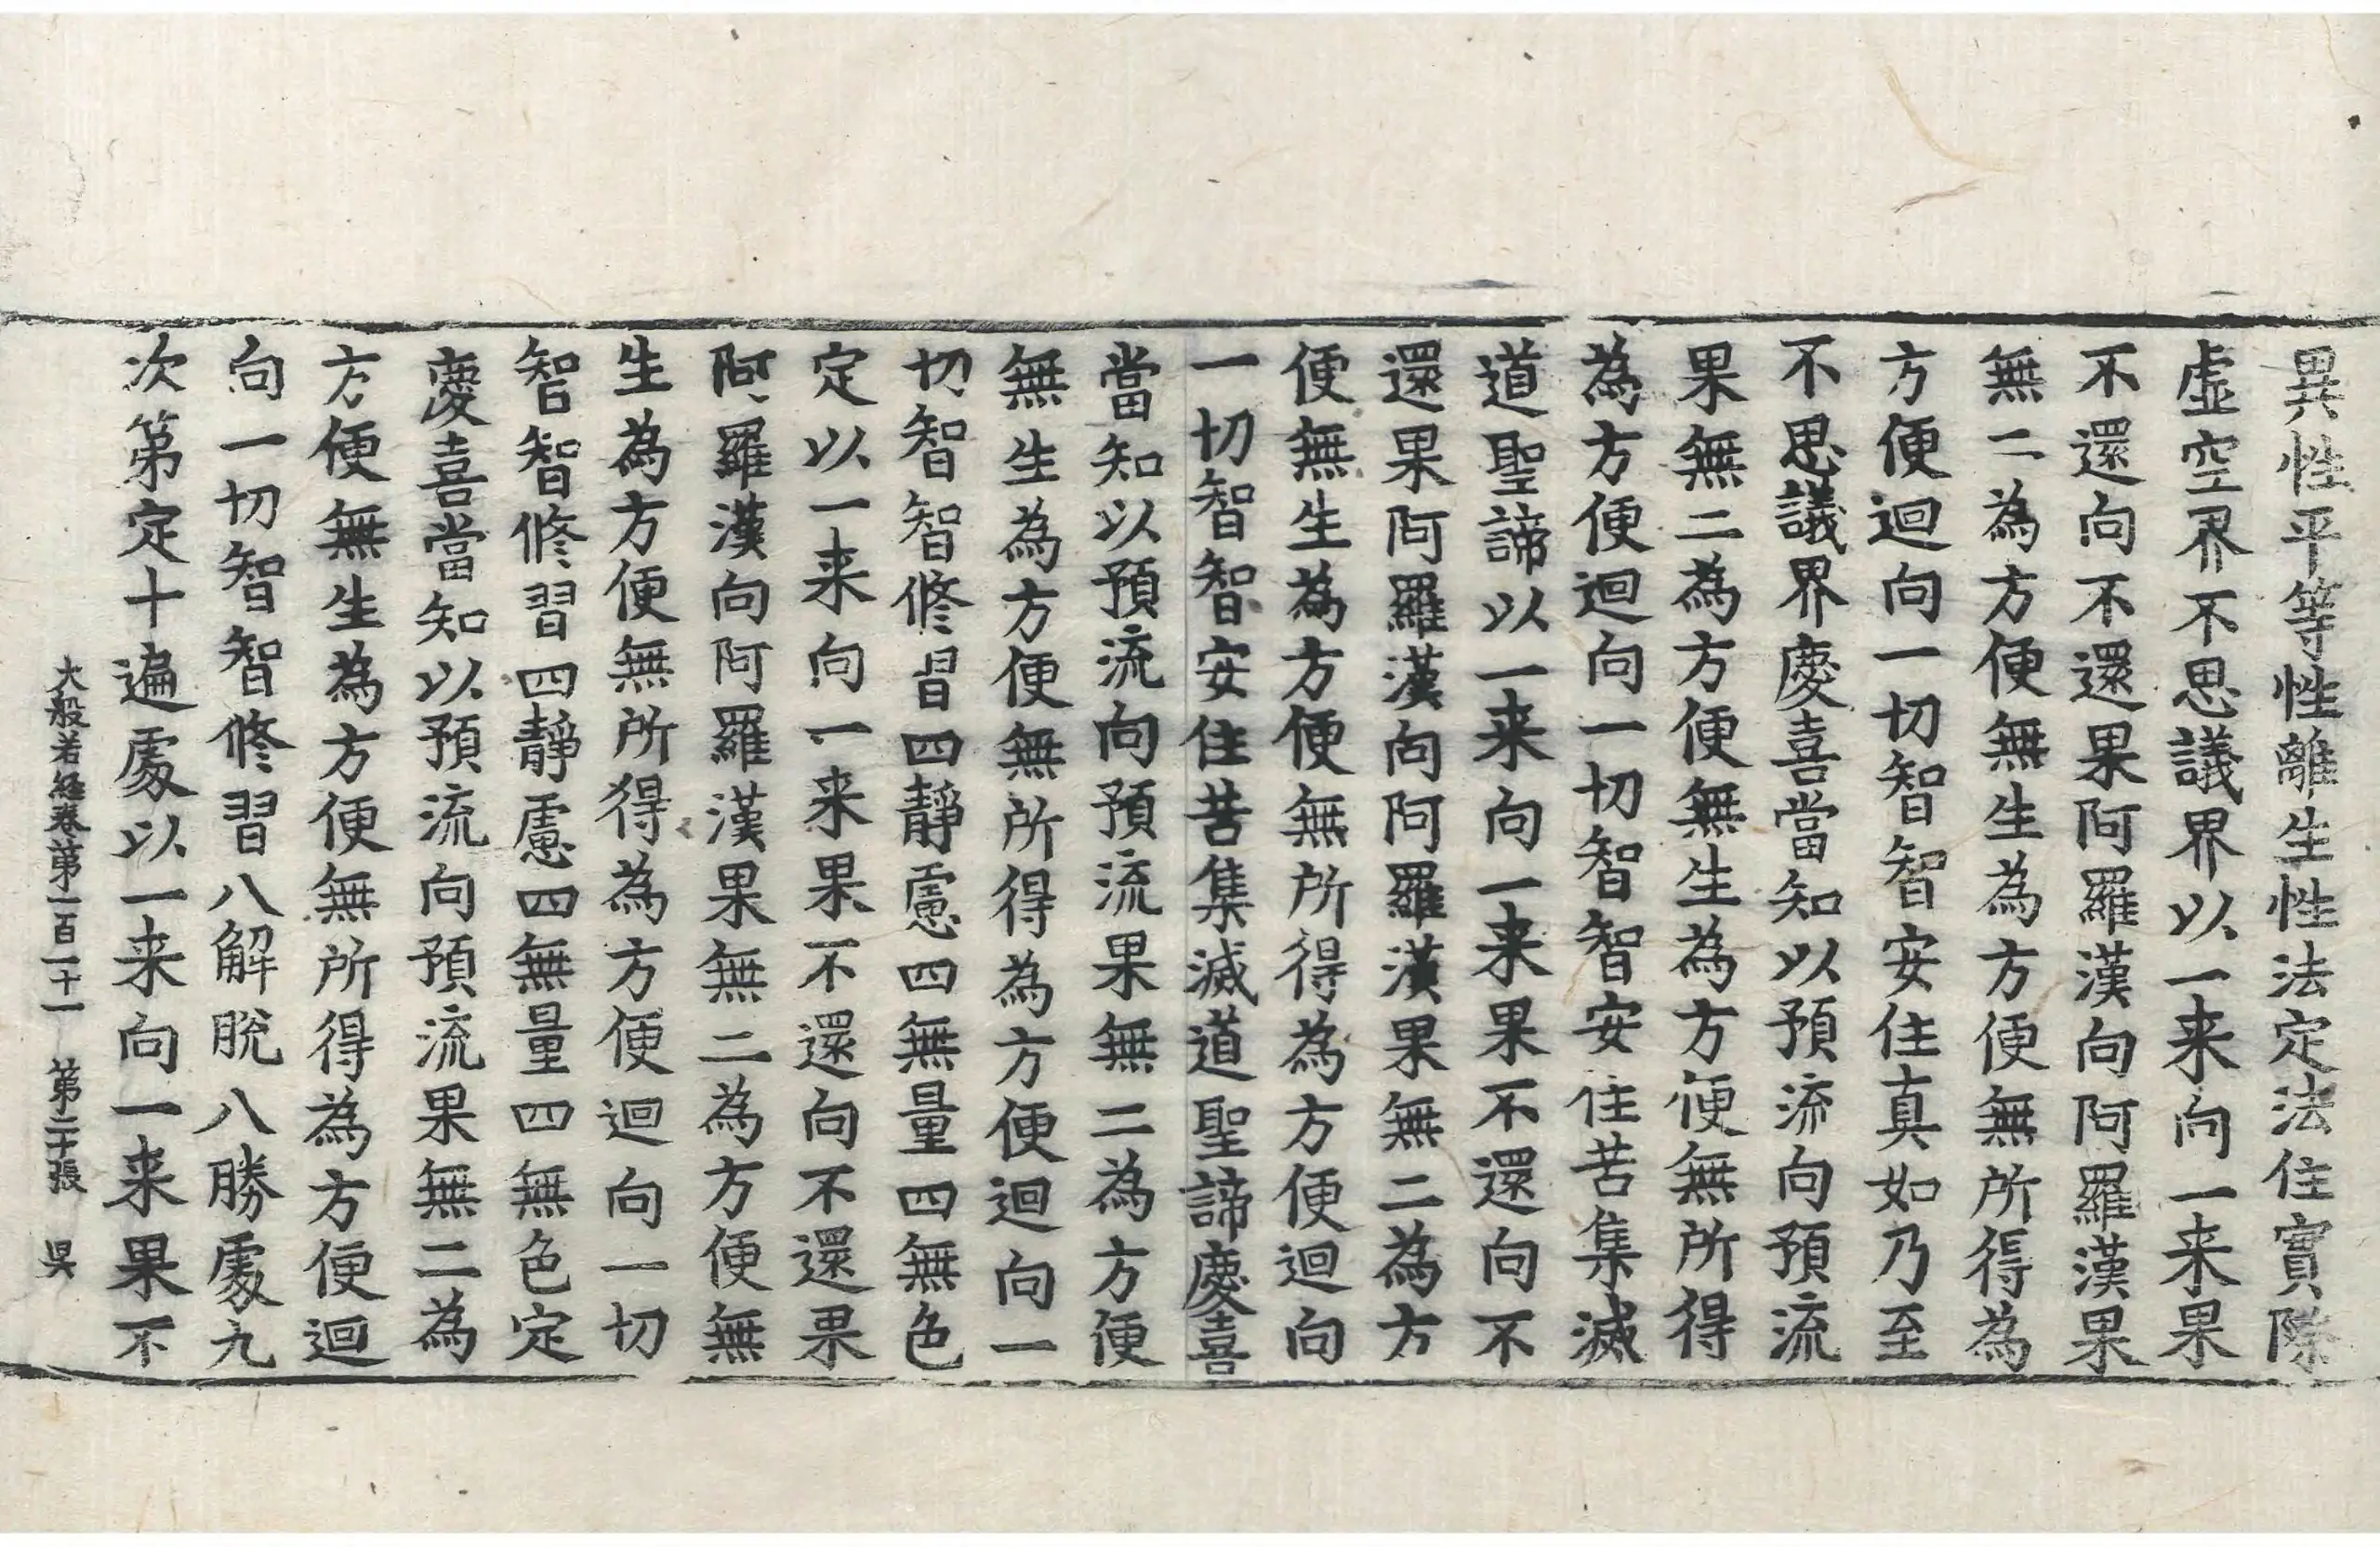 異性平等性離生性法定法住實際
虛空界不思議界以一来向一来果
不還向不還果阿羅漢向阿羅漢果
無二為方便無生為方便無所得為
方便迴向一切智智安住真如乃至
不思議界慶喜當知以預流向預流
果無二為方便無生為方便無所得
為方便迴向一切智智安住苦集滅
道聖諦以一来向一来果不還向不
還果阿羅漢向阿羅漢果無二為方
便無生為方便無所得為方便迴向
一切智智安住苦集滅道聖諦慶喜
當知以預流向預流果無二為方便
無生為方便無所得為方便迴向一
切智智修習四靜慮四無量四無色
定以一来向一来果不還向不還果
阿羅漢向阿羅漢果無二為方便無
生為方便無所得為方便迴向一切
智智修習四靜慮四無量四無色定
慶喜當知以預流向預流果無二為
方便無生為方便無所得為方便迴
向一切智智修習八解脫八勝處九
次第定十遍處以一来向一来果不
大般若経卷第一百一十一 第二十張 吳